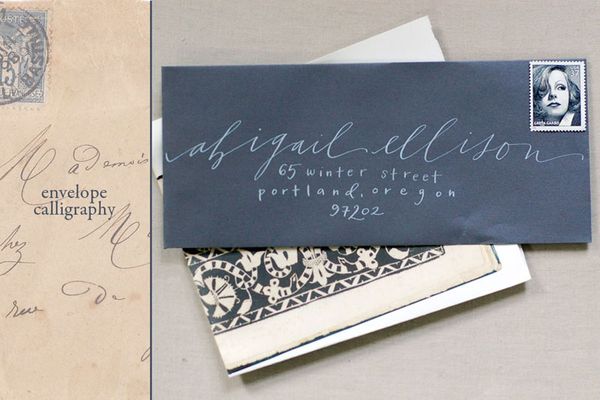 Mademois
envelope
calligraphy
M
chez
rue de
abigail ellison
65 winter street
portland, oregon
97202
GRETA GARBO
37